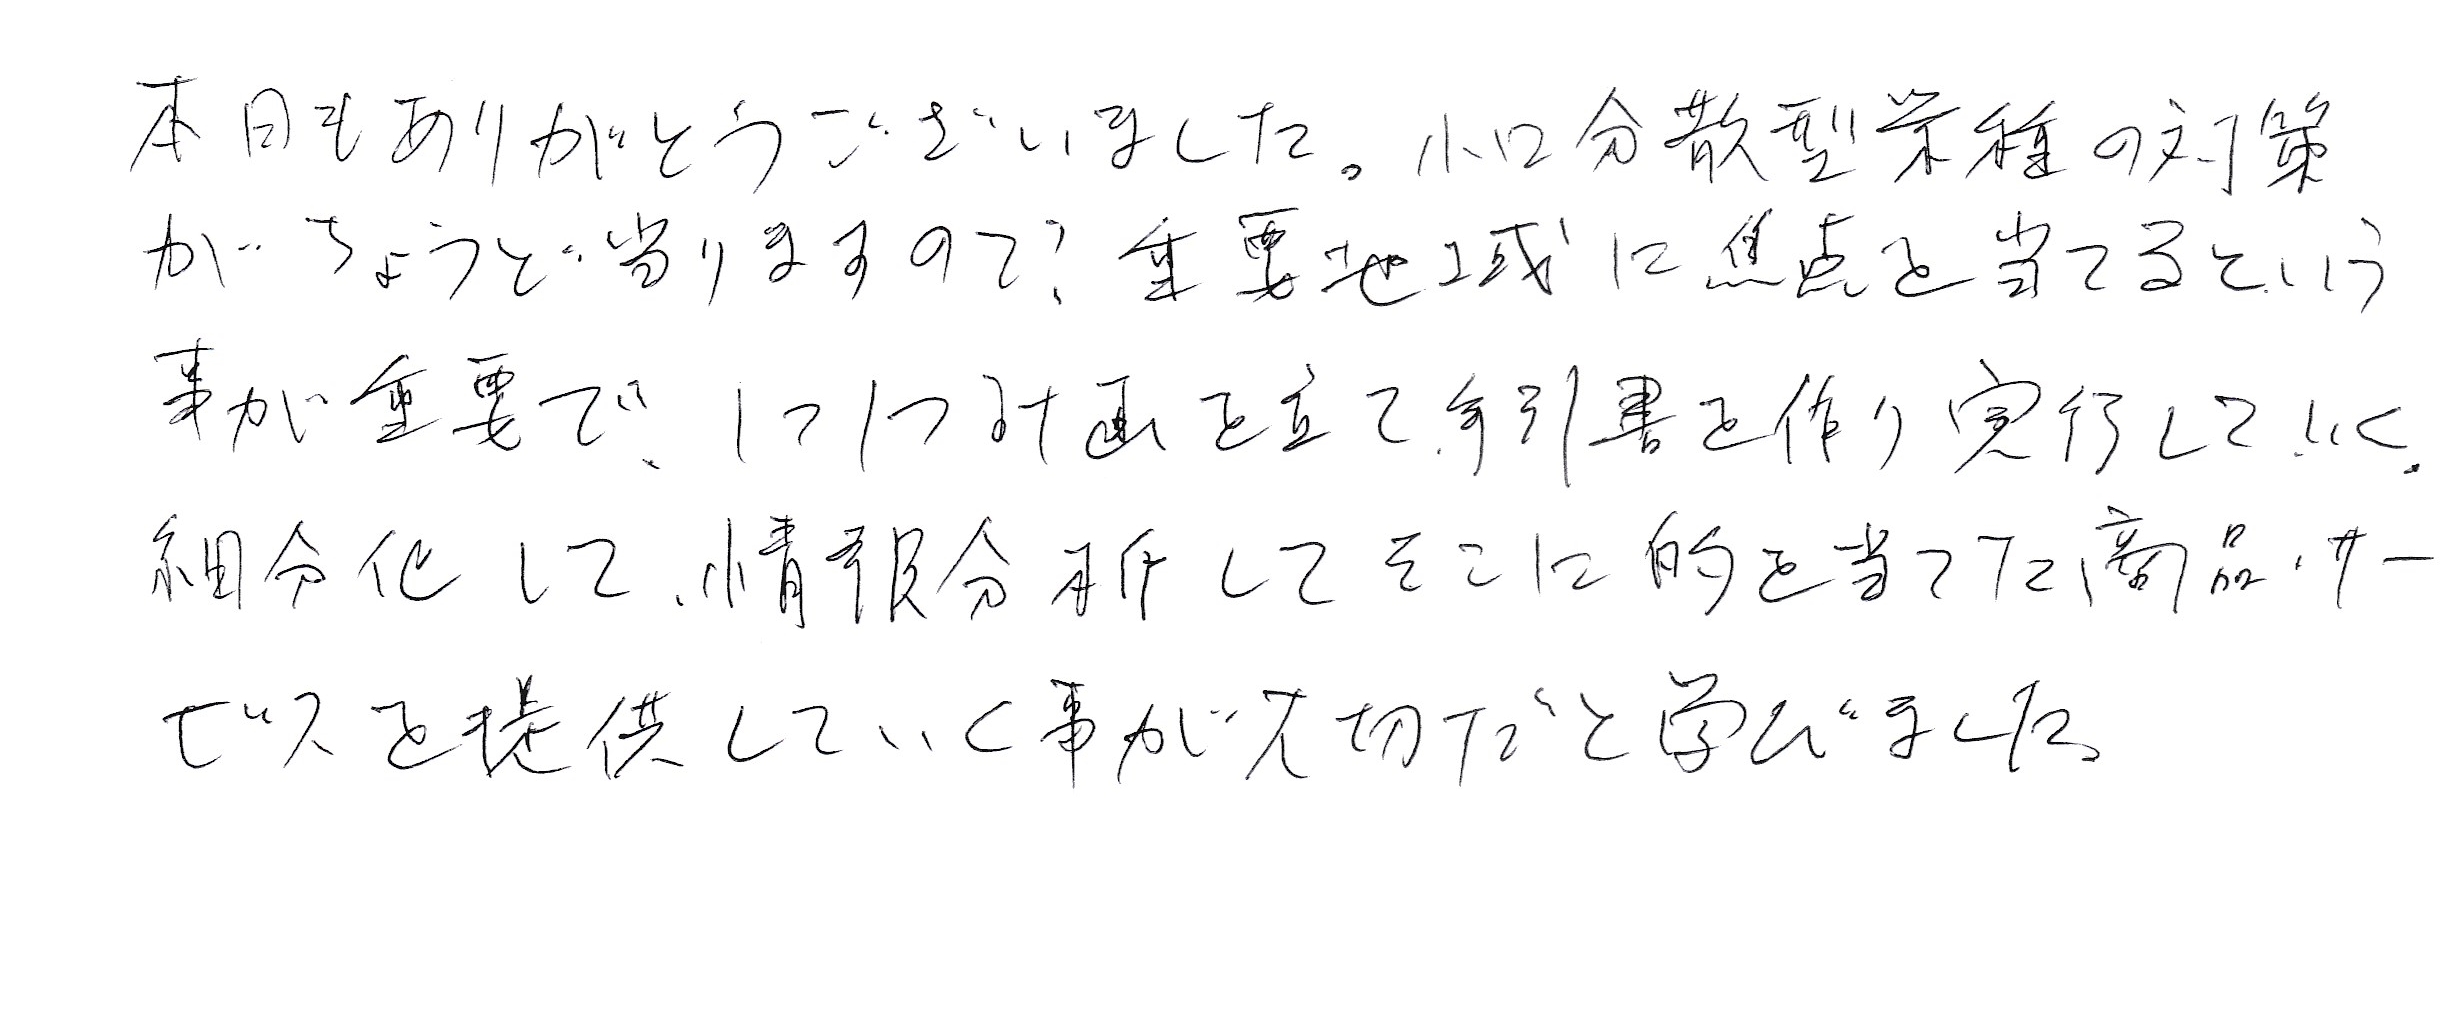 本日もありがとうございました。小口分散型業種の対策
がちょうど当りますので、重要地域に焦点を当てるという
事が重要で、1つ1つ計画を立て、手引書を作り実行していく。
細分化して、情報分析してそこに的を当てた商品・サー
ビスを提供していく事が大切だと学びました。